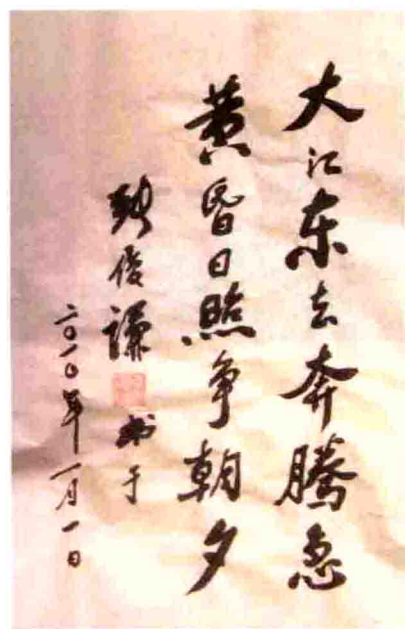 大江东去奔腾急
黄昏日照争朝夕
俊谦 书于
二〇一〇年一月一日